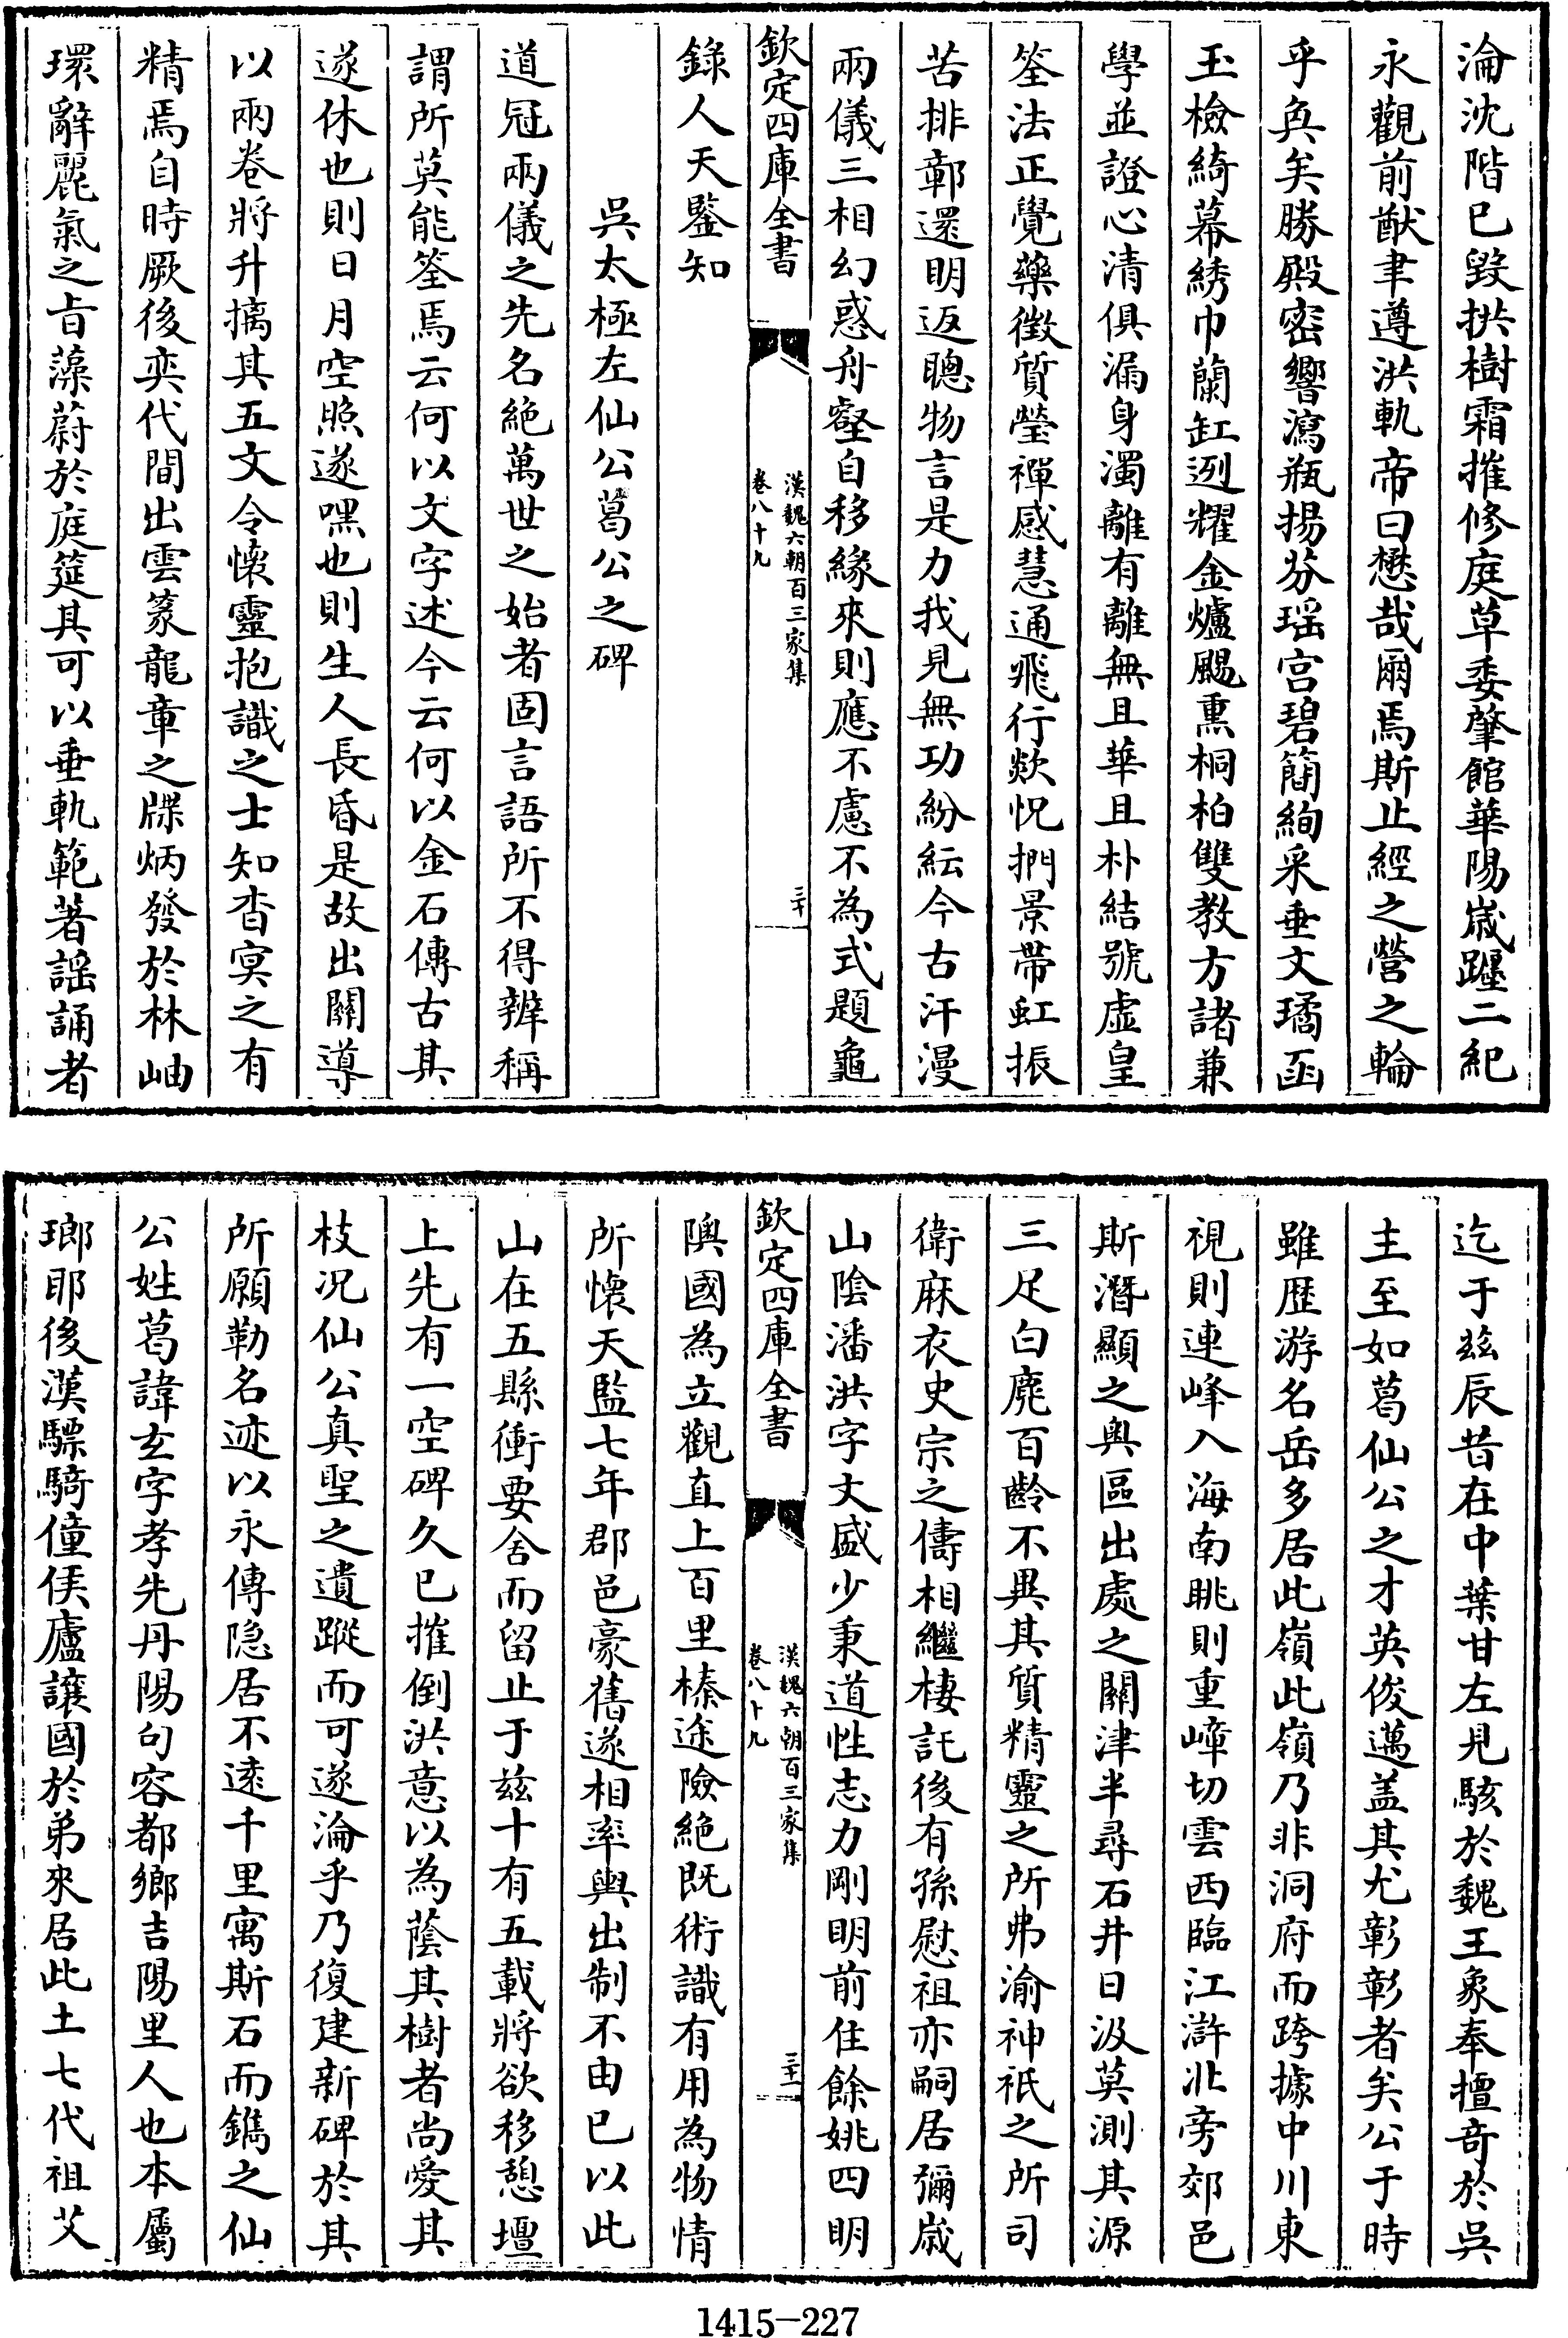 淪沈階已毀拱樹霜摧修庭草委肇館華陽歲躔二紀
永觀前猷聿遵洪軌帝曰懋哉爾焉斯止經之營之輪
乎奐矣勝殿密響瀉瓶揚芬瑶宫碧簡絢采垂文璚函
玉檢綺幕綉巾蘭缸迾耀金爐颺熏桐柏雙教方諸兼
學並證心清俱漏身濁離有離無且華且朴結號虛皇
筌法正覺藥徵質瑩禪感慧通飛行欻怳捫景帶虹振
苦排鄣還明返聰物言是力我見無功紛紜今古汗漫
兩儀三相幻惑舟壑自移緣來則應不慮不為式題龜
欽定四庫全書
漢魏六朝百三家集
卷八十九
三十
錄人天鑒知
吳太極左仙公葛公之碑
道冠兩儀之先名絶萬世之始者固言語所不得辨稱
謂所莫能筌焉云何以文字述今云何以金石傳古其
遂休也則日月空照遂嘿也則生人長昏是故出關導
以兩卷將升摛其五文令懷靈抱識之士知杳冥之有
精焉自時厥後奕代間出雲篆龍章之牒炳發於林岫
環辭麗氣之旨藻蔚於庭筵其可以垂軌範著謡誦者
迄于兹辰昔在中葉甘左見駭於魏王象奉擅奇於吳
主至如葛仙公之才英俊邁盖其尤彰彰者矣公于時
雖歴游名岳多居此嶺此嶺乃非洞府而跨據中川東
視則連峰入海南眺則重嶂切雲西臨江滸北旁郊邑
斯潛顯之奥區出處之關津半尋石井日汲莫測其源
三足白麃百齡不異其質精靈之所弗渝神祇之所司
衛麻衣史宗之儔相繼棲託後有孫慰祖亦嗣居彌歲
山陰潘洪字文盛少秉道性志力剛明前住餘姚四明
欽定四庫全書
漢魏六朝百三家集
卷八十九
三十一
隩國為立觀直上百里榛途險絶既術識有用為物情
所懷天監七年郡邑豪舊遂相率輿出制不由已以此
山在五縣衝要舍而留止于兹十有五載將欲移憩壇
上先有一空碑久已摧倒洪意以為蔭其樹者尚愛其
枝况仙公真聖之遺蹤而可遂淪乎乃復建新碑於其
所願勒名迹以永傳隐居不遠千里寓斯石而鐫之仙
公姓葛諱玄字孝先丹陽句容都鄉吉陽里人也本屬
瑯耶後漢驃騎僮侯廬讓國於弟來居此土七代祖艾
1415-227